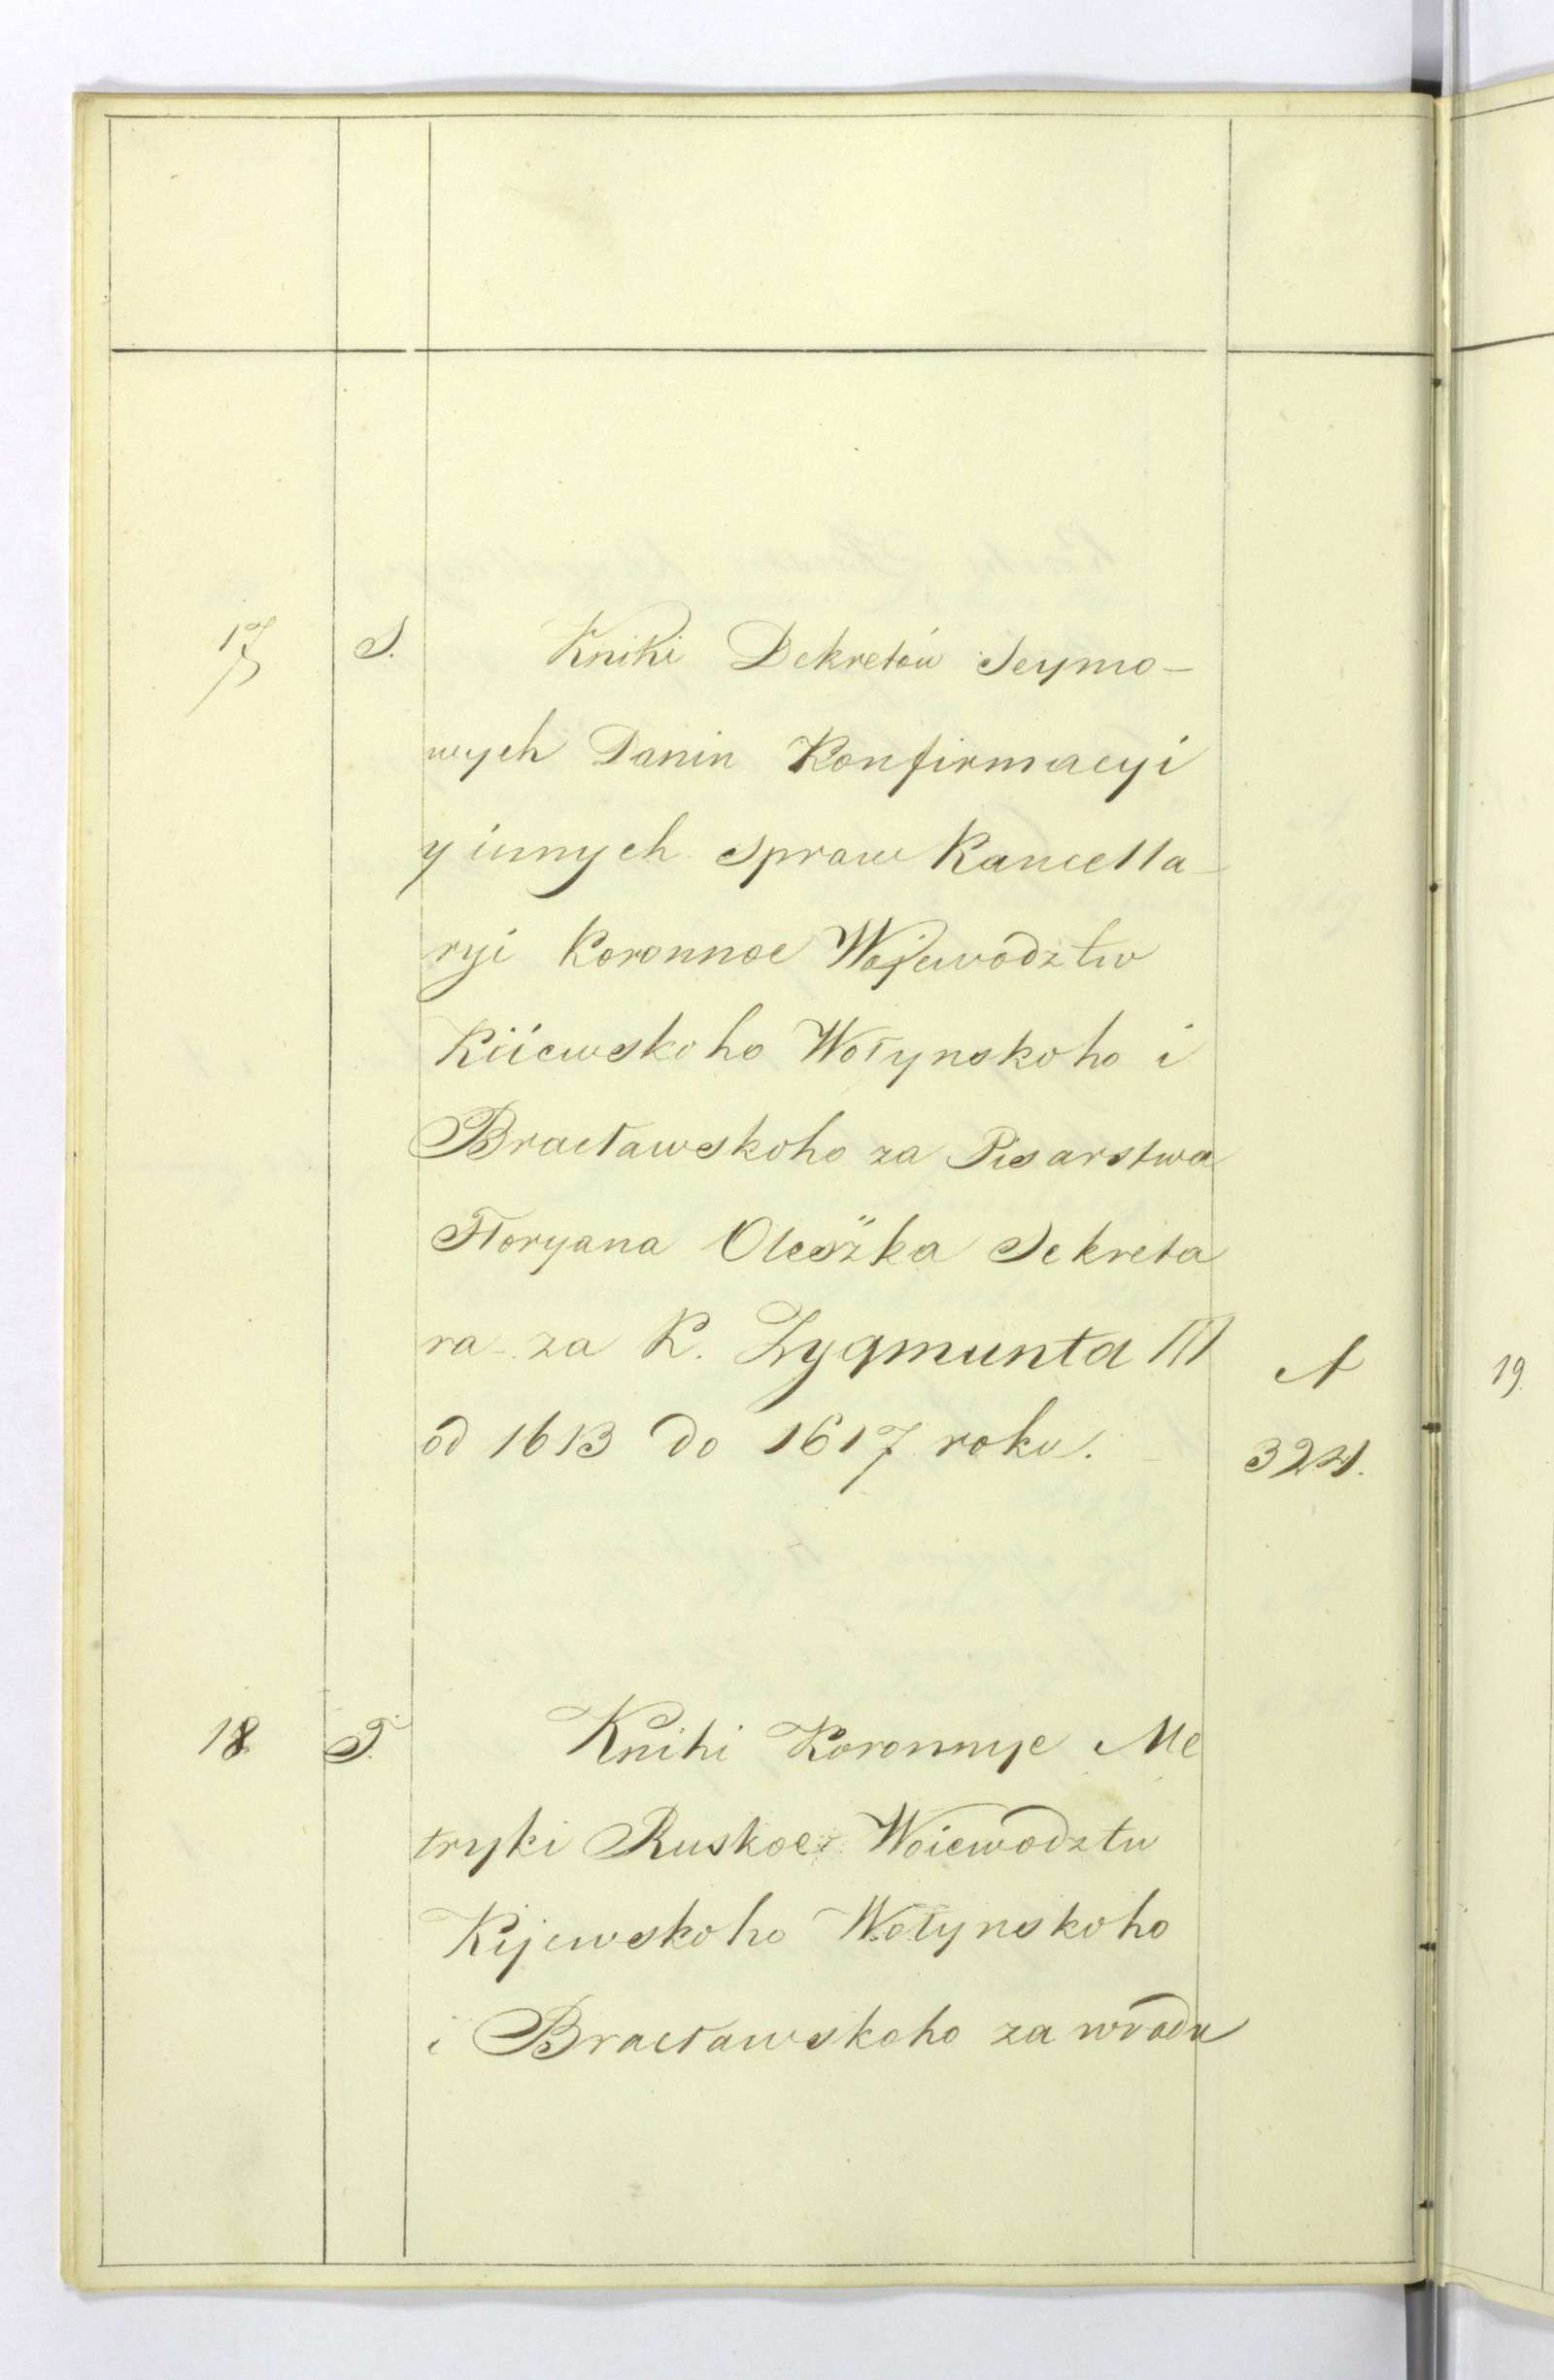 17 S. Kniki Dekretów Seymo-
wych Danin Konfirmacyi
y innych spraw Kancella-
ryi Koronnoe Wojewodztw
Kiiewskoho Wołynskoho i
Bracławskoho za Pisarstwa
Floryana Oleszka Sekreta
ra za K. Zygmunta III A
od 1613 do 1617 roku. 324.
18 T. Knihi Koronnye Me
tryki Ruskoe Woiewodztw
Kijewskoho Wołynskoho
i Bracławskoho za wradu
19